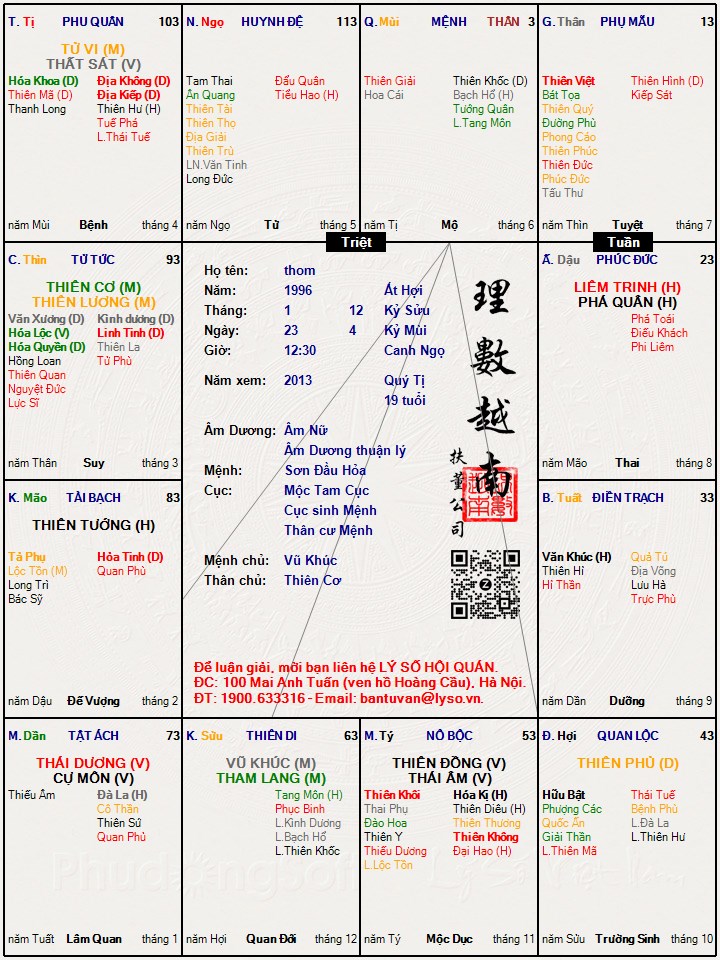 T. Tị PHU QUÂN 103
TỬ VI (M)
THẤT SÁT (V)
Hóa Khoa (D) Địa Không (D)
Thiên Mã (D) Địa Kiếp (D)
Thanh Long Thiên Hư (H)
Tuế Phá
L.Thái Tuế
năm Mùi Bệnh tháng 4
N. Ngọ HUYNH ĐỆ 113
Tam Thai Đẩu Quân
Ân Quang Tiểu Hao (H)
Thiên Tài
Thiên Thọ
Địa Giải
Thiên Trù
LN.Văn Tinh
Long Đức
năm Ngọ Tử tháng 5
Q. Mùi MỆNH THÂN 3
Thiên Giải Thiên Khốc (D)
Hoa Cái Bạch Hổ (H)
Tướng Quân
L.Tang Môn
năm Tị Mộ tháng 6
G. Thân PHỤ MẪU 13
Thiên Việt Thiên Hình (D)
Bát Tọa Kiếp Sát
Thiên Quý
Đường Phù
Phong Cáo
Thiên Phúc
Thiên Đức
Phúc Đức
Tấu Thư
năm Thìn Tuyệt tháng 7
Triệt
Tuần
C. Thìn TỬ TỨC 93
THIÊN CƠ (M)
THIÊN LƯƠNG (M)
Văn Xương (D) Kình dương (D)
Hóa Lộc (V) Linh Tinh (D)
Hóa Quyền (D) Thiên La
Hồng Loan Tử Phù
Thiên Quan
Nguyệt Đức
Lực Sĩ
năm Thân Suy tháng 3
Họ tên: thom
Năm: 1996 Ất Hợi
Tháng: 1 12 Kỷ Sửu
Ngày: 23 4 Kỷ Mùi
Giờ: 12:30 Canh Ngọ
Năm xem: 2013 Quý Tị
19 tuổi
Âm Dương: Âm Nữ
Âm Dương thuận lý
Mệnh: Sơn Đầu Hỏa
Cục: Mộc Tam Cục
Cục sinh Mệnh
Thân cư Mệnh
Mệnh chủ: Vũ Khúc
Thân chủ: Thiên Cơ
理數越南
扶董公司
Để luận giải, mời bạn liên hệ LÝ SỐ HỘI QUÁN.
ĐC: 100 Mai Anh Tuấn (ven hồ Hoàng Cầu), Hà Nội.
ĐT: 1900.633316 - Email: bantuvan@lyso.vn.
Ấ. Dậu PHÚC ĐỨC 23
LIÊM TRINH (H)
PHÁ QUÂN (H)
Phá Toái
Điếu Khách
Phi Liêm
năm Mão Thai tháng 8
K. Mão TÀI BẠCH 83
THIÊN TƯỚNG (H)
Tả Phụ Hỏa Tinh (D)
Lộc Tồn (M) Quan Phù
Long Trì
Bác Sỹ
năm Dậu Đế Vượng tháng 2
B. Tuất ĐIỀN TRẠCH 33
Văn Khúc (H) Quả Tú
Thiên Hỉ Địa Võng
Hỉ Thần Lưu Hà
Trực Phù
năm Dần Dưỡng tháng 9
M. Dần TẬT ÁCH 73
THÁI DƯƠNG (V)
CỰ MÔN (V)
Thiếu Âm Đà La (H)
Cô Thần
Thiên Sứ
Quan Phủ
năm Tuất Lâm Quan tháng 1
K. Sửu THIÊN DI 63
VŨ KHÚC (M)
THAM LANG (M)
Tang Môn (H)
Phục Binh
L.Kình Dương
L.Bạch Hổ
L.Thiên Khốc
năm Hợi Quan Đới tháng 12
M. Tý NÔ BỘC 53
THIÊN ĐỒNG (V)
THÁI ÂM (V)
Thiên Khôi Hóa Kị (H)
Thai Phụ Thiên Diêu (H)
Đào Hoa Thiên Thương
Thiên Y Thiên Không
Thiếu Dương Đại Hao (H)
L.Lộc Tồn
năm Tý Mộc Dục tháng 11
Đ. Hợi QUAN LỘC 43
THIÊN PHỦ (D)
Hữu Bật Thái Tuế
Phượng Các Bệnh Phù
Quốc Ấn L.Đà La
Giải Thần L.Thiên Hư
L.Thiên Mã
năm Sửu Trường Sinh tháng 10